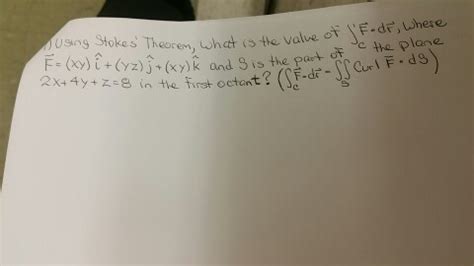 1) Using Stokes' Theorem, what is the value of ∫_C F⃗•dr⃗, where
F⃗=(xy)î+(yz)ĵ+(xy)k̂ and S is the part of the plane
2x+4y+z=8 in the first octant? (∫_C F⃗•dr⃗ = ∬_S Curl F⃗•dS)